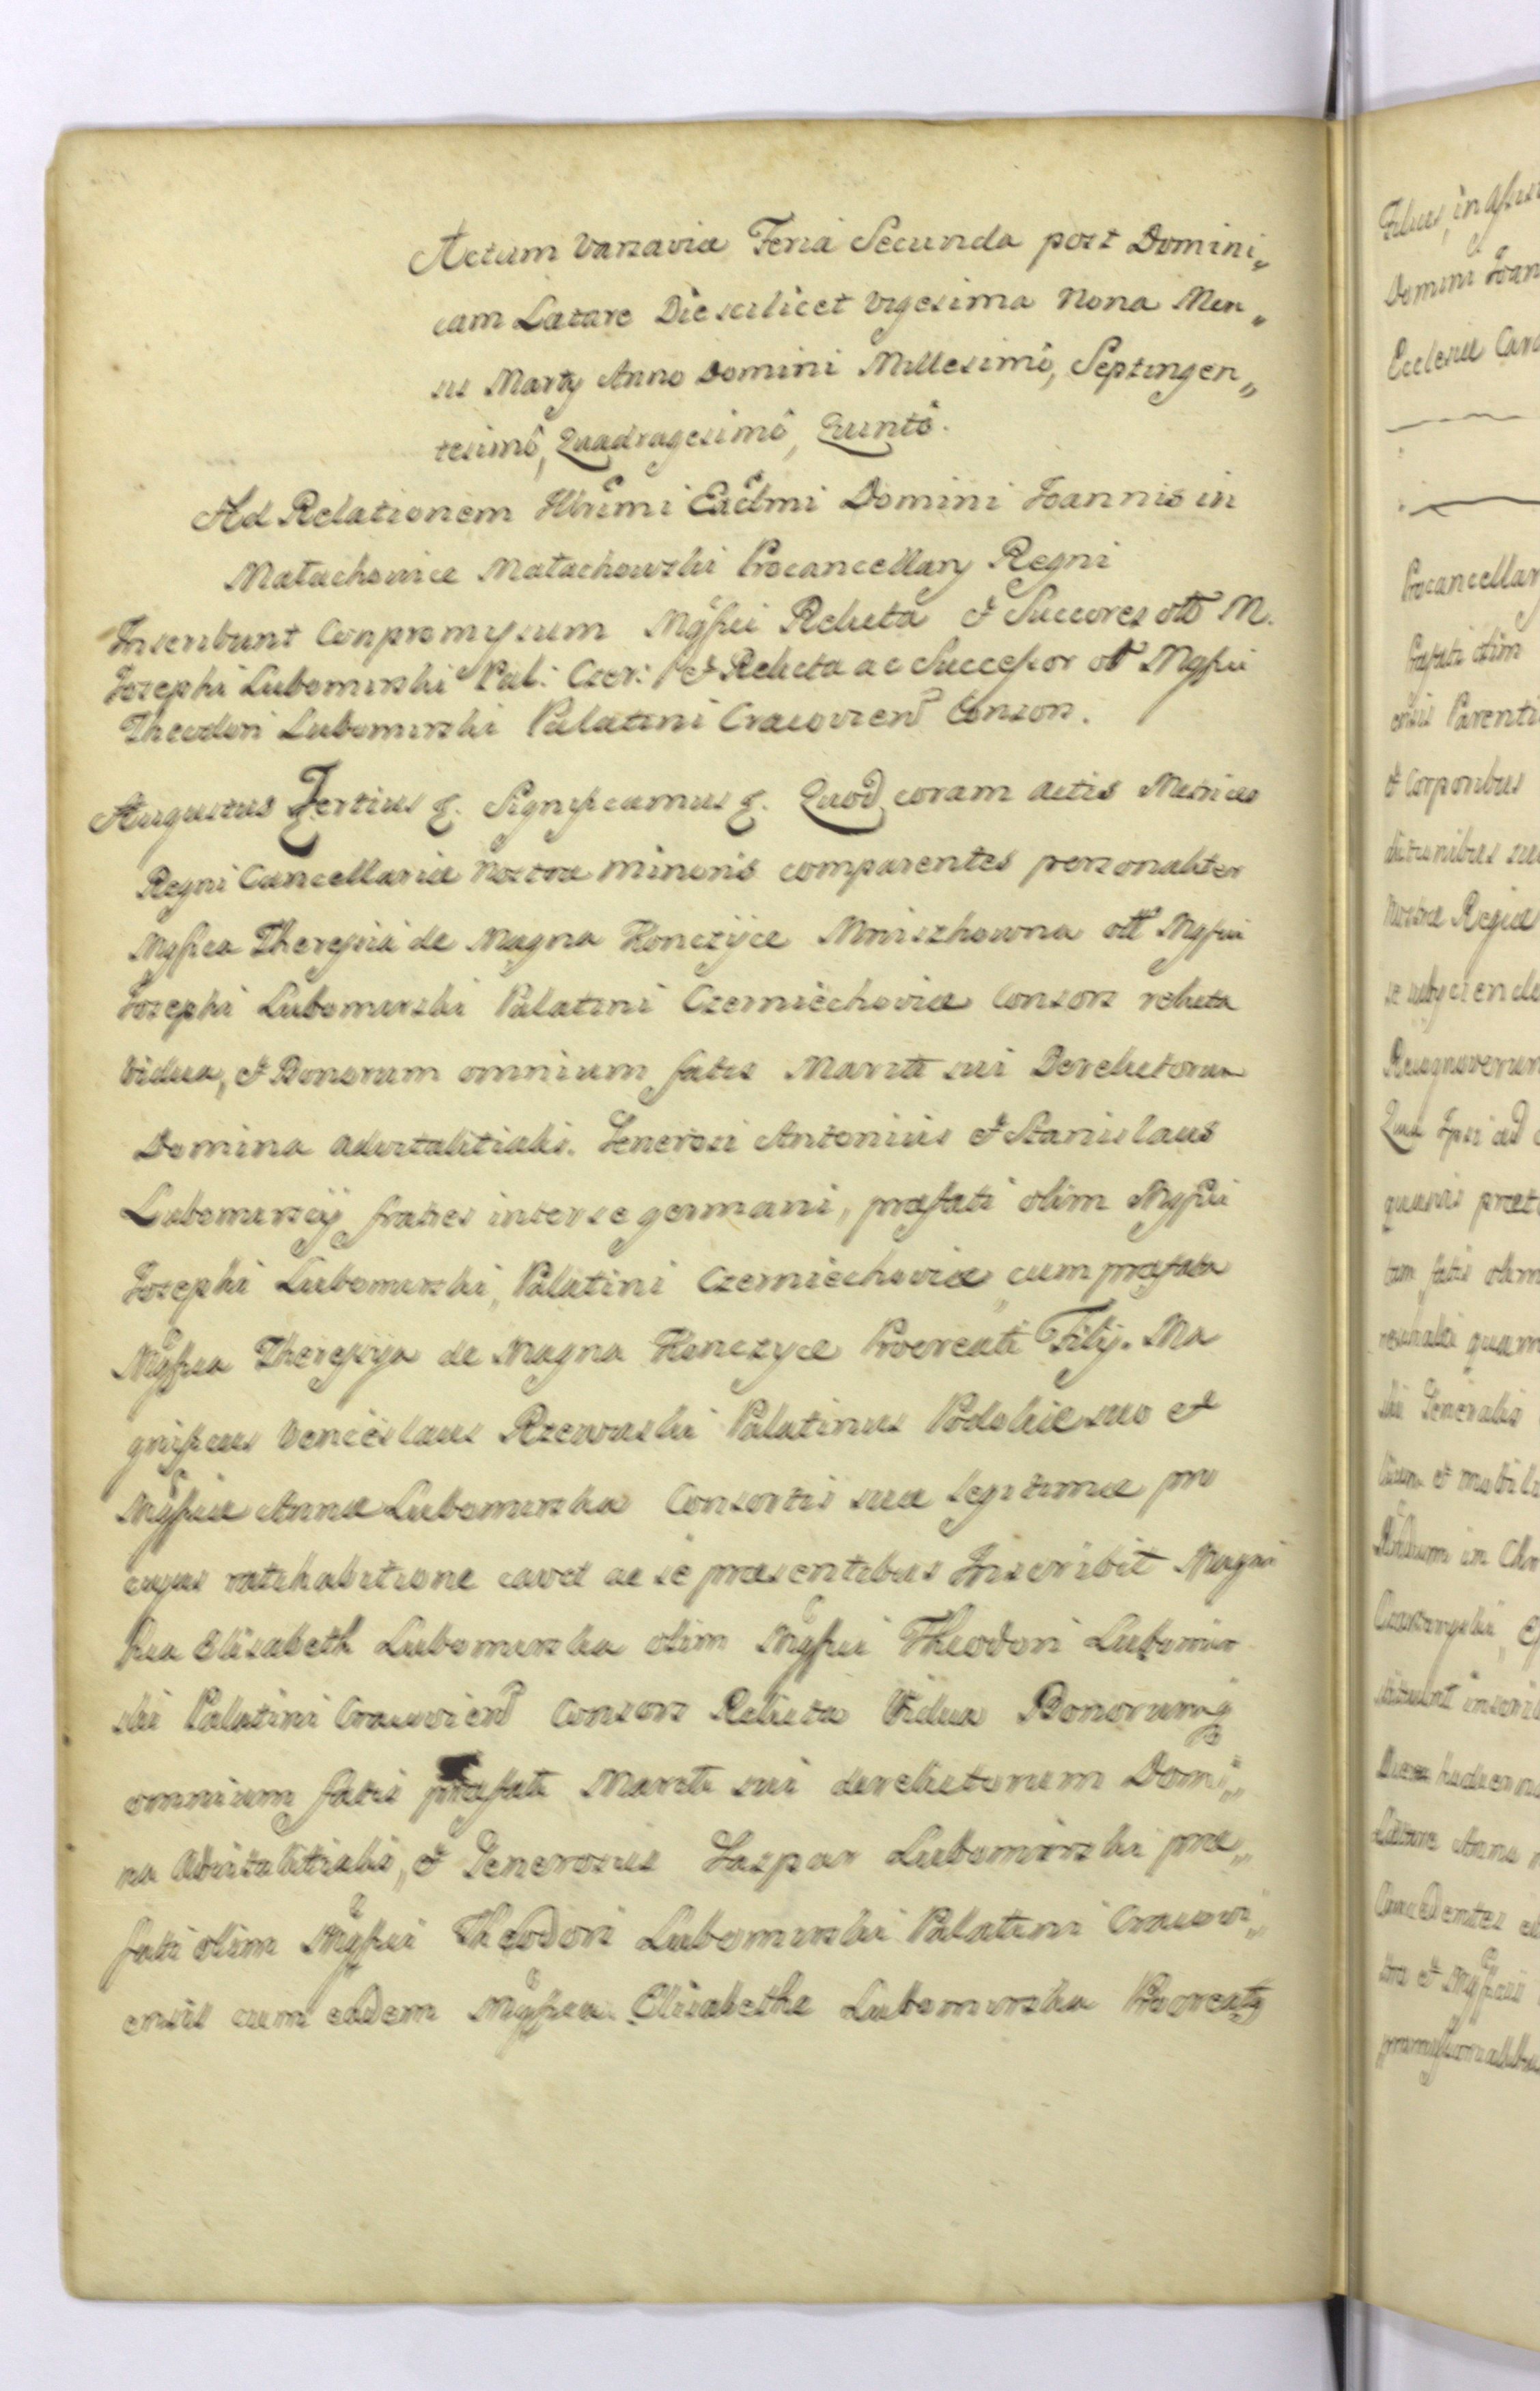 Actum Varsaviæ Feria Secunda post Domini„
cam Lætare Die scilicet Vigesima Nona Men„
sis Martÿ Anno Domini Millesimô, Septingen„
tesimô, Quadragesimô, Quintô.
Ad Relationem Illrīmi Exclmi Domini Joannis in
Małachowice Małachowski Procancellarÿ Regni
Inscribunt Conpromysum Mgfici Relicta et Succores ott M.
Josephi Lubomirski Pal: Czer: et Relicta ac Successor ott Mgfici
Theodori Lubomirski Palatini Cracovien Consors.
Augustus Tertius &. Significamus &. Quod coram Actis Metrices
Regni Cancellariæ Nostræ Minoris comparentes personaliter
Mgfica Theressia de Magna Konczÿce Mniszkowna ott Mgfici
Josephi Lubomirski Palatini Czerniechoviæ Consors relicta
Vidua, et Bonorum omnium fatis Mariti sui Derelictorum
Domina advitalitialis. Generosi Antonius et Stanislaus
Lubomirscÿ fratres inter se germani, præfati olim Mgfici
Josephi Lubomirski, Palatini Czerniechoviæ, cum præfata
Mgfica Theressya de Magna Konczyce Procreati Filÿ. Ma
gnificus Venceslaus Rzewuski Palatinus Podoliæ suo et
Mgficæ Annæ Lubomirska Consortis suæ legitimæ pro
cujus ratihabitione cavet ac se præsentibus Inscribit Magni
fica Elisabeth Lubomirska olim Mgfici Theodori Lubomir
ski Palatini Cracovien Consors Relicta Vidua Bonorumq
omnium fatis præfati Mariti sui derelictorum Domi„
na Advitalitialis, et Generosus Gaspar Lubomirski præ„
fati olim Mgfici Theodori Lubomirski Palatini Cracovi„
ensis cum eadem Mgfica Elisabetha Lubomirska Procreatq
Filius, in
Domini Joan
Ecclesiæ
Procancellar
Præfati olim
ensis Parenti
et Corporibus
Nostræ Regiæ
se subÿciendo
Recognoverun
Quia Ipsi ad
quasvis
tam fatis olim
quam
ski Generalis
et mobili
in Chr
Diem hodierna
Lætare Anno
et Mgficis